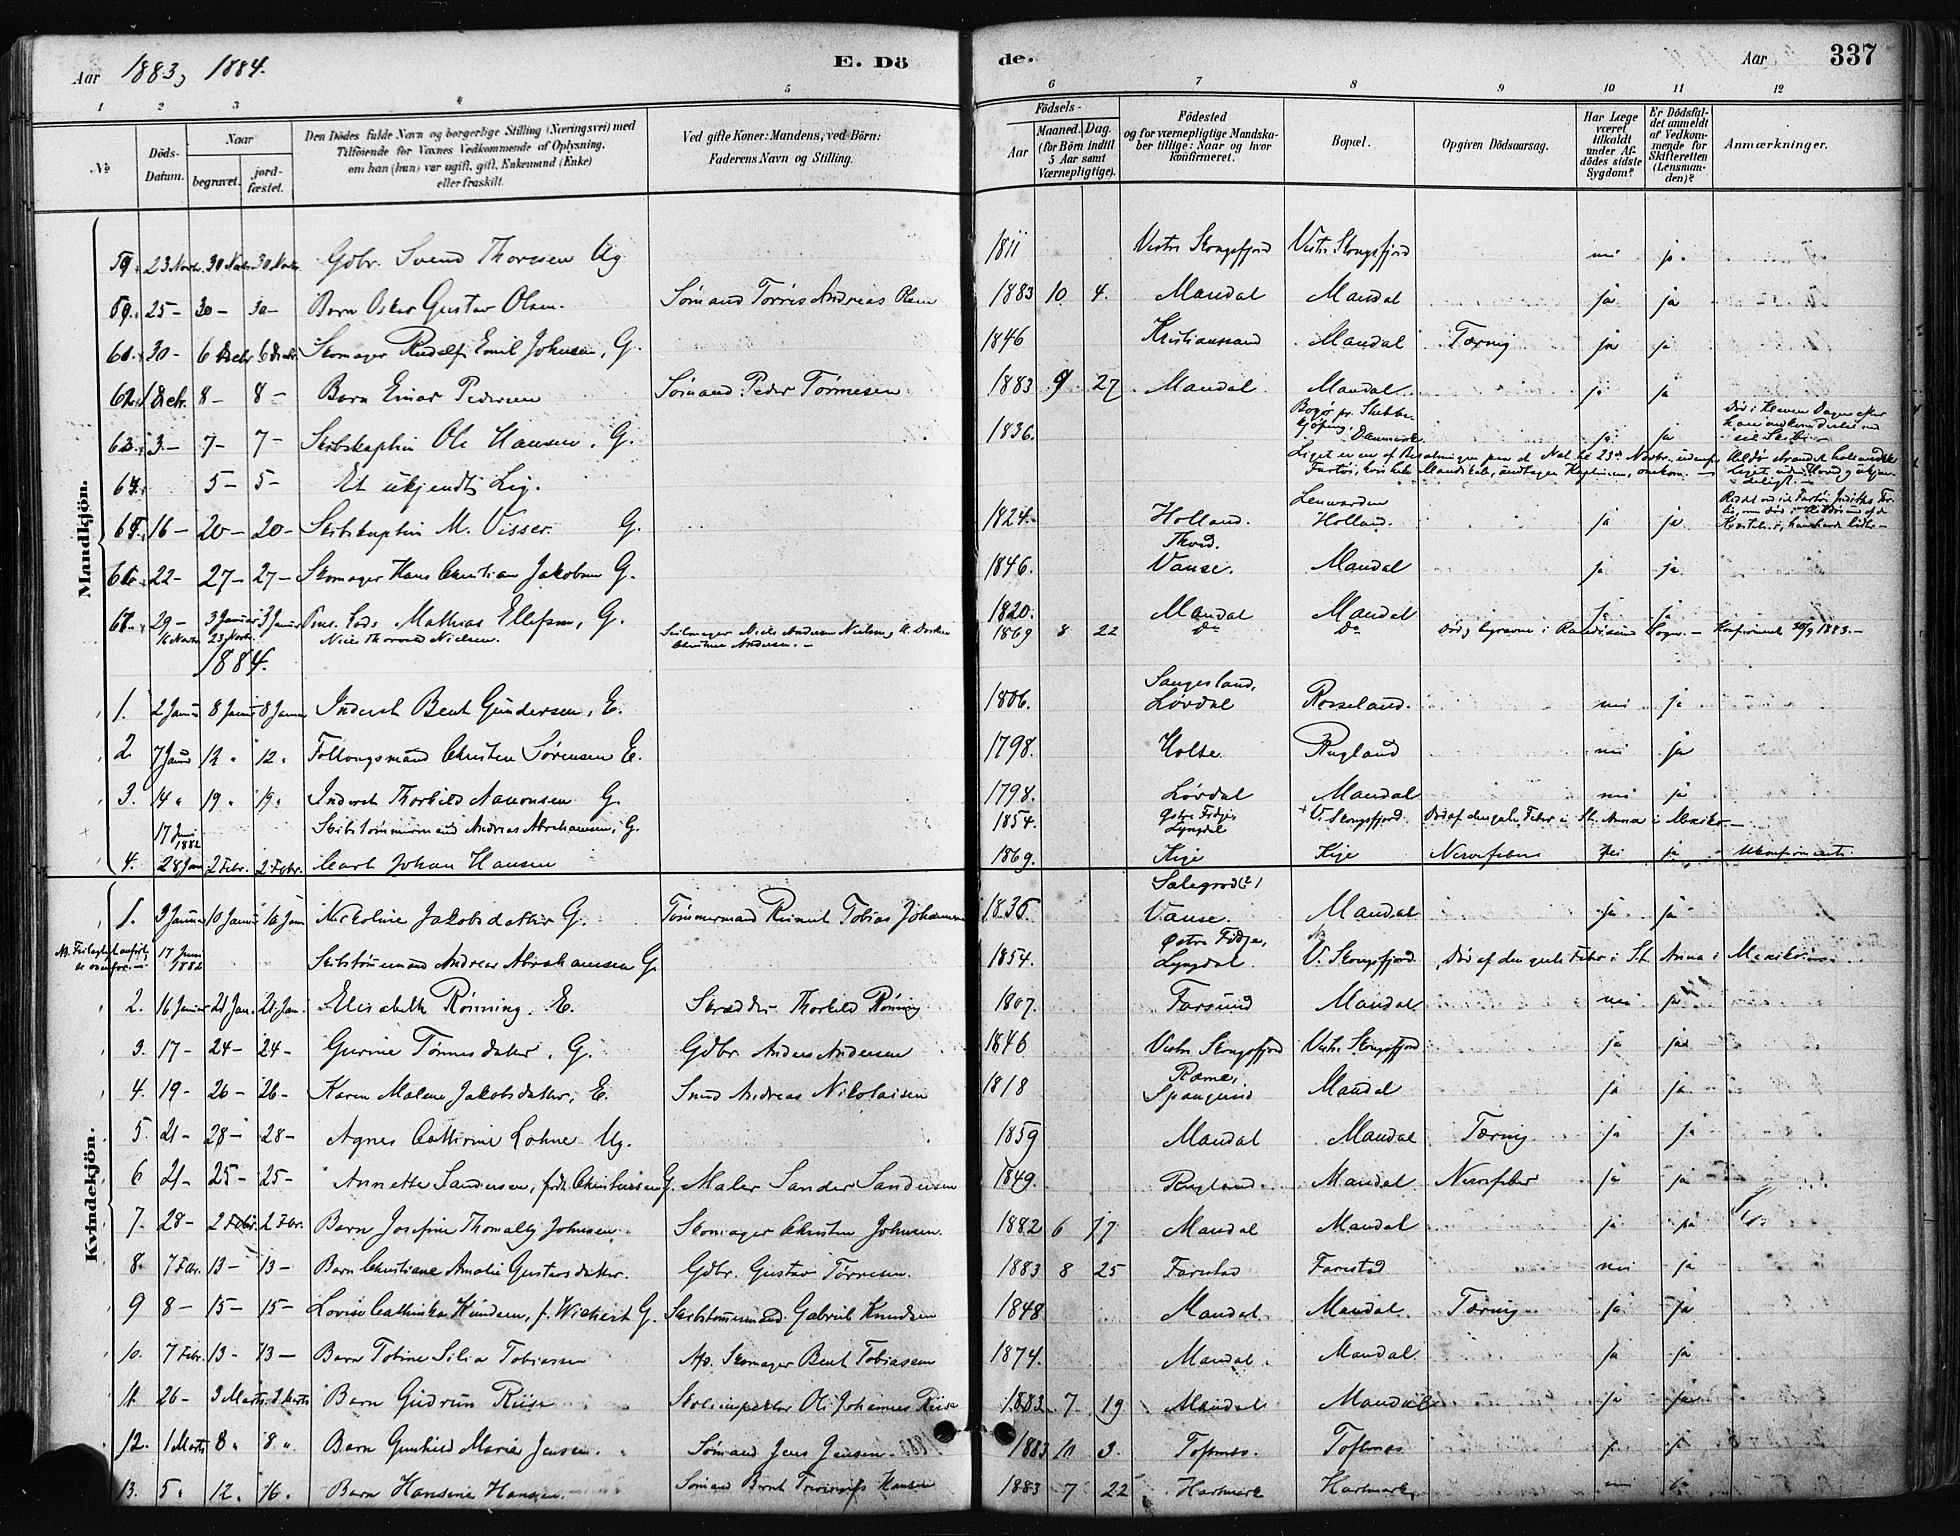 Aar 1883, 1884.
E. Dö
de.
Aar
337
1 2 3 4 5 6 7 8 9 10 11 12
No
Döds-Datum.
Naar
begravet.
jord-fæstet.
Den Dödes fulde Navn og borgerlige Stilling (Næringsvei) med
Tilföiende for Voxnes Vedkommende af Oplysning,
om han (hun) var ugift, gift, Enkemand (Enke)
eller fraskilt.
Ved gifte Koner: Mandens, ved Börn:
Faderens Navn og Stilling.
Födsels-
Aar
Maaned. Dag.
(for Börn indtil
5 Aar samt
Værnepligtige).
Födested
og for værnepligtige Mandska-
ber tillige: Naar og hvor
konfirmeret.
Bopæl.
Opgiven Dödsaarsag.
Har Læge
været
tilkaldt
under Af-
dödes sidste
Sygdom?
Er Dödsfal-
det anmeldt
af Vedkom-
mende for
Skifteretten
(Lensman-
den)?
Anmærkninger.
Mandkjön.
59. 23 Novbr. 30 Novbr. 30 Novbr. Gdbr. Svend Thorsen Ug 1811 Vestre Skougsfjord Vestre Skougsfjord nei ja
25 - 30 - 30 - Barn Oskar Gustav Olsen. Sømand Tørres Andreas Olsen 1883 10 4. Mandal Mandal ja ja
61. 30 - 6 Decbr. 6 Decbr. Skomager Rudolf Emil Johnsen, G. 1846 Kristianssand Mandal Tæring ja ja
62. 1 Decbr. 8 - 8 - Barn Einar Pedersen Sømand Peder Tørmesen 1883 9 27 Mandal Mandal ja ja
63. 3 - 7 - 7 - Skibskaptein Ole Hansen, G. 1836. Danmark ja ja
64. 5 - 5 - Et ukjendt Lig.
65. 16 - 20 - 20 - Skibskaptein M. Visser. G. 1824. Holland. Holland. ja ja
66. 22 - 27 - 27 - Skomager Hans Christian Jakobsen G. 1846. Vanse. Mandal ja ja
67. 29 - 3 Januar 3 Januar Pens. Lods Mathias Ellefsen, G. 1820. Mandal Mandal ja ja
16 Novbr 23 Novbr. Niels Thorvald Nielsen. Seilmager Niels Andersen Nielsen 1869 8 22 Do Do Konfirmeret 30/9 1883.-
1884.
1. 2 Januar 8 Januar 8 Januar Inderst Bent Gundersen, E. 1806. Løvdal Rosseland. nei ja
2. 7 Januar 12 " 12 " Follougsmand Christen Sørensen E. 1798. Holte Rugland nei ja
3. 14 " 19 " 19 " Inderst Thorkild Aanonsen G. 1798. Løvdal Mandal nei ja
17 Juni 1882 Skibstømmermand Andreas Abrahamsen, G. 1854. Østre Fidje, Lyngdal V. Skougsfjord Død af den gule Feber i St. Anna i Mexiko -
4. 28 Jan 2 Febr. 2 Febr. Carl Johan Hansen 1869. Kige Kige Nervefeber nei ja Ukonfirmeret.
Kvindekjön.
1. 3 Januar 10 Januar 10 Jan Nickoline Jakobsdatter G. Tømmermand Reinert Tobias Johannesen 1836. Vanse. Mandal ja ja
17 Juni 1882 Skibstømmermand Andreas Abrahamsen G. 1854. Østre Fidje, Lyngdal V. Skougsfjord. Død af den gule Feber i St. Anna i Mexiko
2. 16 Januar 21 Jan. 21 Jan. Elisabeth Rønning. E. Skrædder Thorkild Rønning 1807. Farsund Mandal nei ja
3. 17 - 24 - 24 - Gurine Tønnesdatter, G. Gdbr. Anders Andersen 1846 Vestre Skougsfjord Vestre Skougsfjord ja ja
4. 19 - 26 - 26 - Karen Malene Jakobsdatter, E. Smed Andreas Nikolaisen 1818 Rame, Spangereid Mandal ja ja
5. 21 - 28 - 28 - Agnes Cathrine Lohne Ug. 1859 Mandal Mandal Tæring ja ja
6 21 - 25 - 25 - Annette Sandersen, født Christensen G. Maler Sander Sandersen 1849. Rugland. Mandal Nervefeber ja ja
7. 28 - 2 Febr. 2 Febr. Barn Josefine Thomally Johnsen. Skomager Christen Johnsen. 1882 6 17 Mandal Mandal ja ja
8. 7 Febr. 13 - 13 - Barn Christiane Amalie Gustavsdatter. Gdbr. Gustav Tørresen. 1883 8 25 Farestad Farestad nei ja
9 8 - 15 - 15 - Lovise Cathinka Knudsen, f. Wichert G. Skibstømmermand. Gabriel Knudsen 1848 Mandal Mandal Tæring ja ja
10. 7 Febr. 13 - 13 - Barn Tobine Silia Tobiassen Afd. Skomager Bent Tobiasen 1874. Mandal. Mandal. ja ja
11. 26 - 3 Marts 3 Marts Barn Gudrun Riise Skoleinspektør Ole Johannes Riise 1883. 7 19 Mandal Mandal ja ja
12. 1 Marts 8 " 8 " Barn Gunhild Marie Jensen. Sømand Jens Jensen. 1883 10 3. Toftenes Toftenes ja ja
13. 5 " 12 " 16 " Barn Hansine Hansen. Sømand Bernt Hansen 1883 7 22 Hartmark Hartmark nei ja